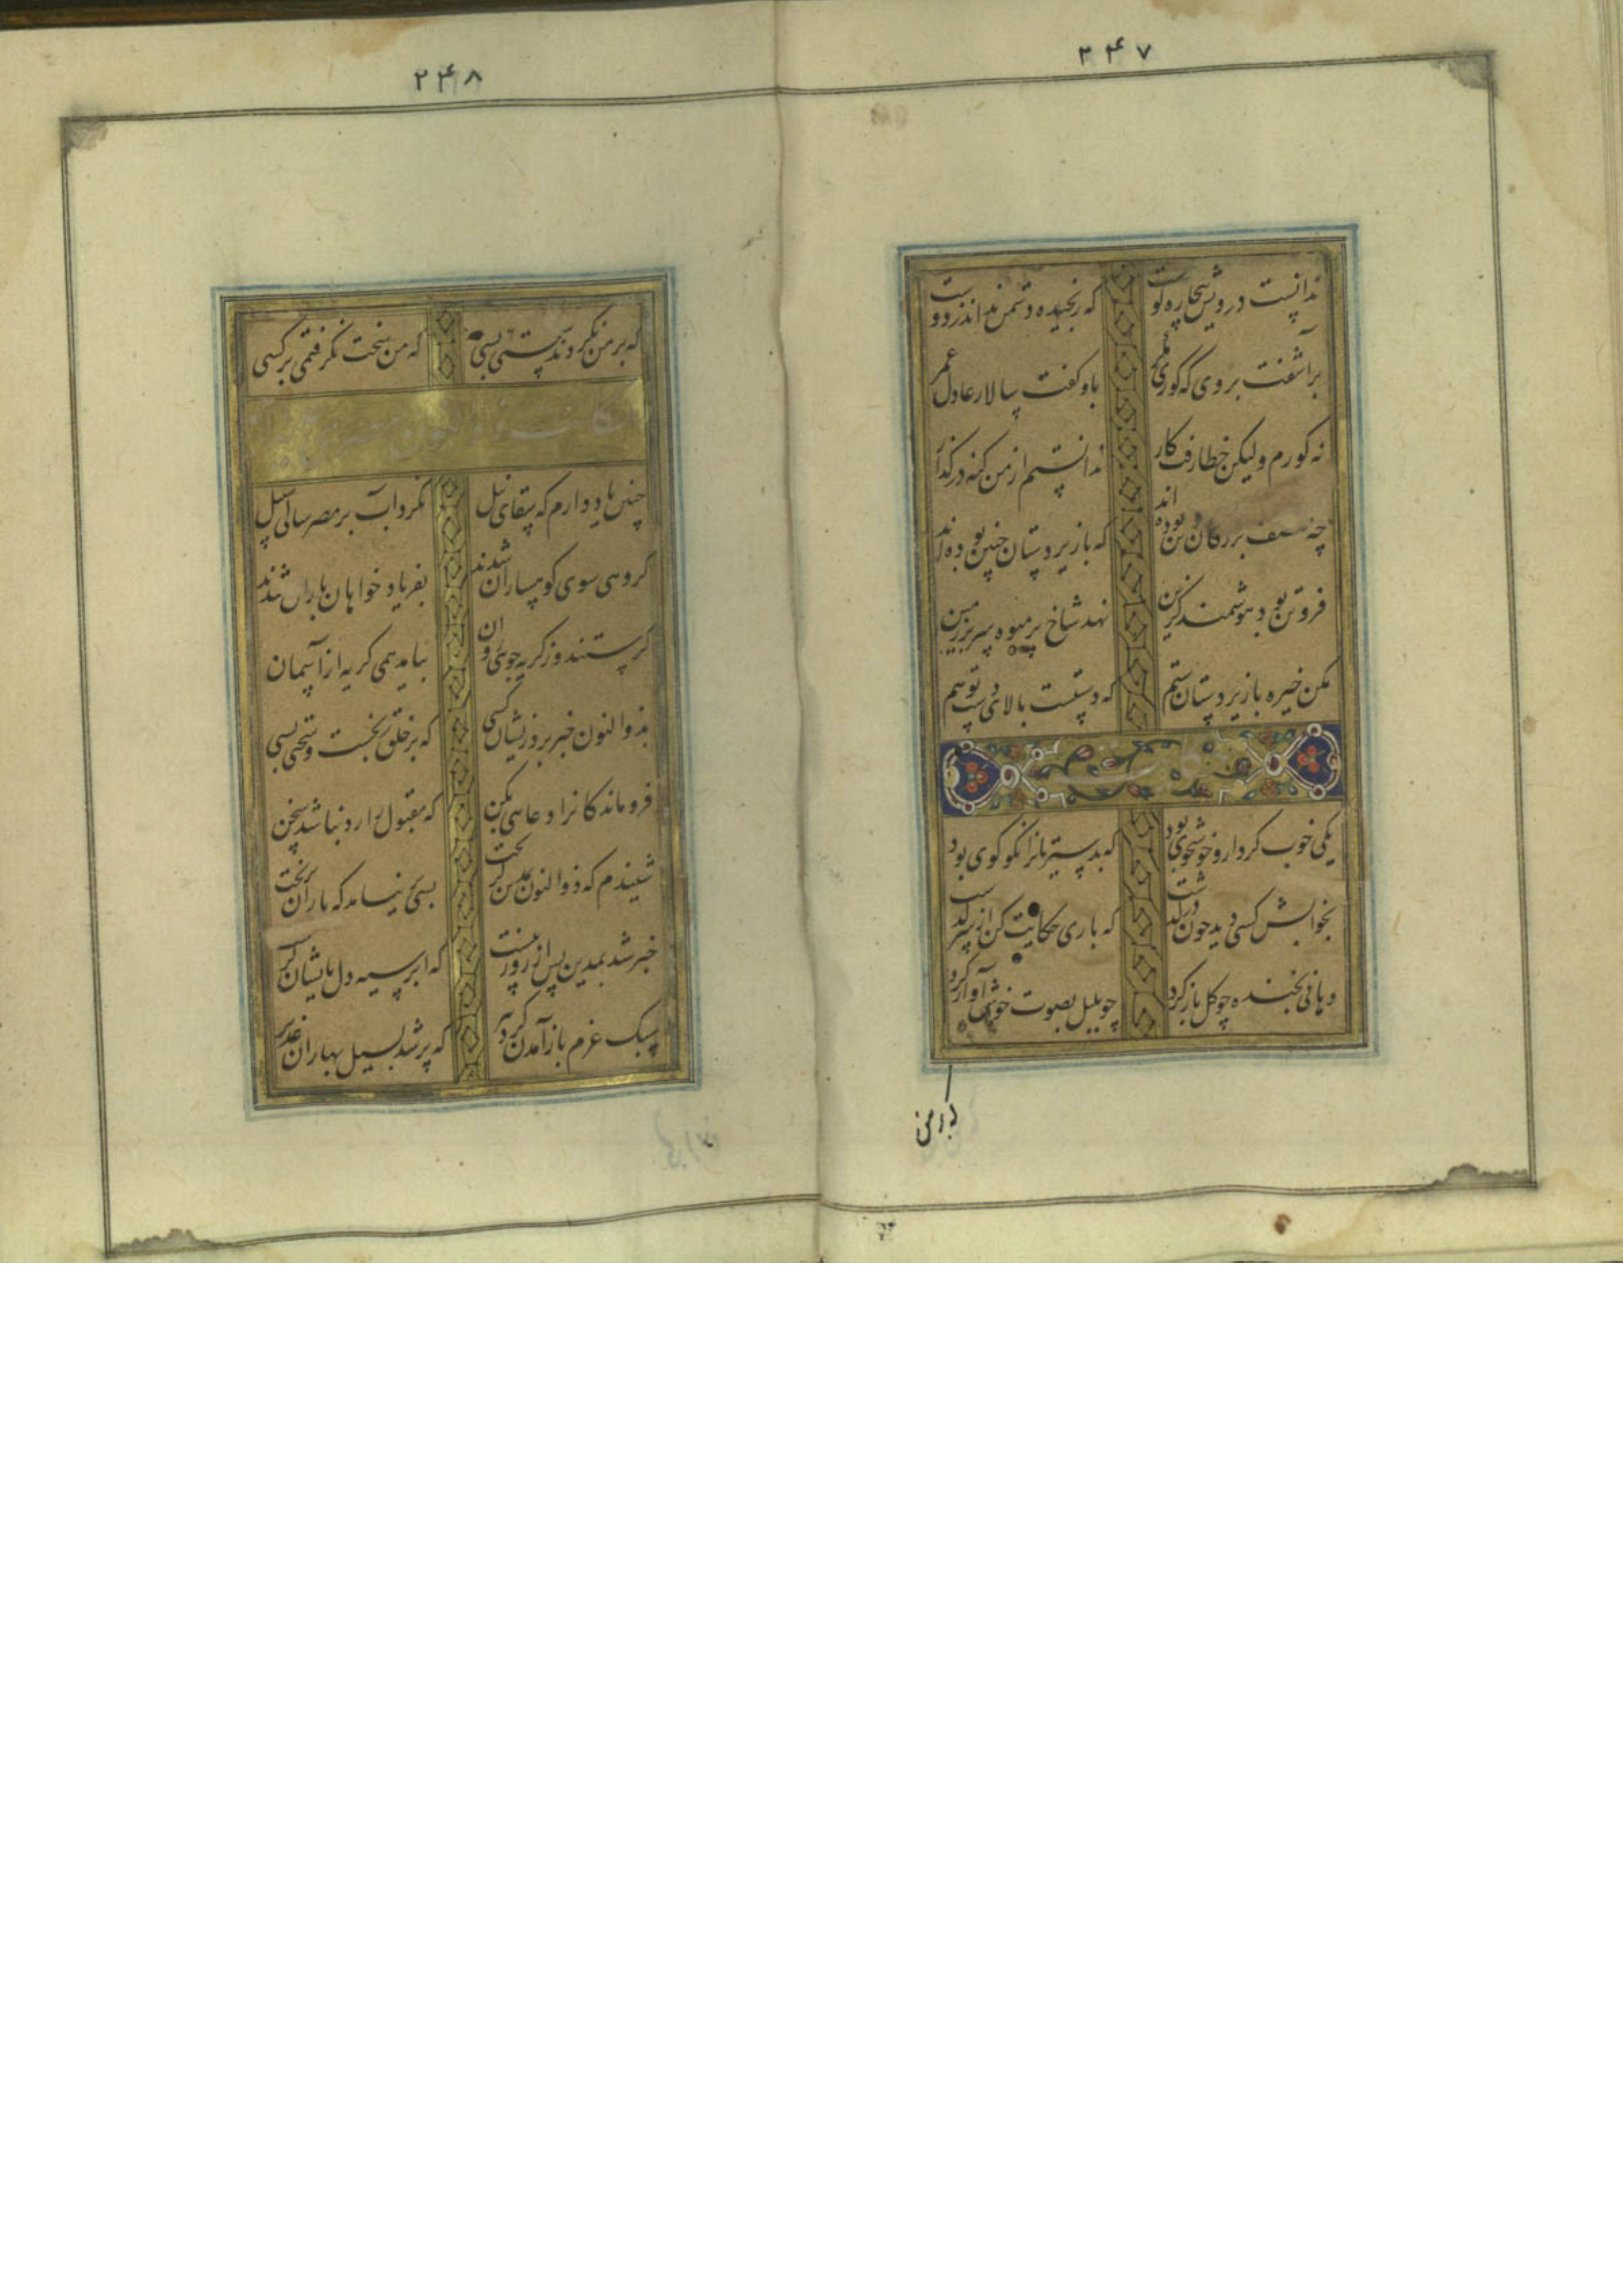 ۲۴۷
ندانست درویش بیچاره کوست که رنجیده دشمن نداند ز دوست
برآشفت بر وی که کوری مکر باو کفت سالار عادل عمر
نه کورم ولیکن خطا رفت کار ندانستم از من کنه در کذار
چه منصف بزرکان دین بوده اند که با زیردستان چنین بوده اند
فروتن بود هوشمند کزین نهد شاخ پر میوه سر بر زمین
مکن خیره با زیردستان ستم که دستیست بالای دست تو هم
یکی خوب کردار و خوشخوی بود که بد سیرتانرا نکو کوی بود
بخوابش کسی دید چون درکذشت که باری حکایت کن از سرکذشت
دهانی بخنده چو کل باز کرد چو بلبل بصوت خوش آواز کرد
که بر من
۲۴۸
که بر من نکردند سختی بسی که من سخت نکرفتمی بر کسی
چنین یاد دارم که سقای نیل نکرد آب بر مصر سالی سبیل
کروهی سوی کوهساران شدند بفریاد خواهان باران شدند
کرستند و از کریه جوئی روان نیامد همی کریه از آسمان
بذوالنون خبر برد زیشان کسی که بر خلق رنجست و سختی بسی
فروماندکانرا دعایی بکن که مقبول را رد نباشد سخن
شنیدم که ذوالنون بمدین کریخت بسی نیامد که باران بریخت
خبر شد بمدین پس از روز بیست که ابر سیه دل بایشان کریست
سبک عزم باز آمدن کرد پیر که پر شد بسیل بهاران غدیر